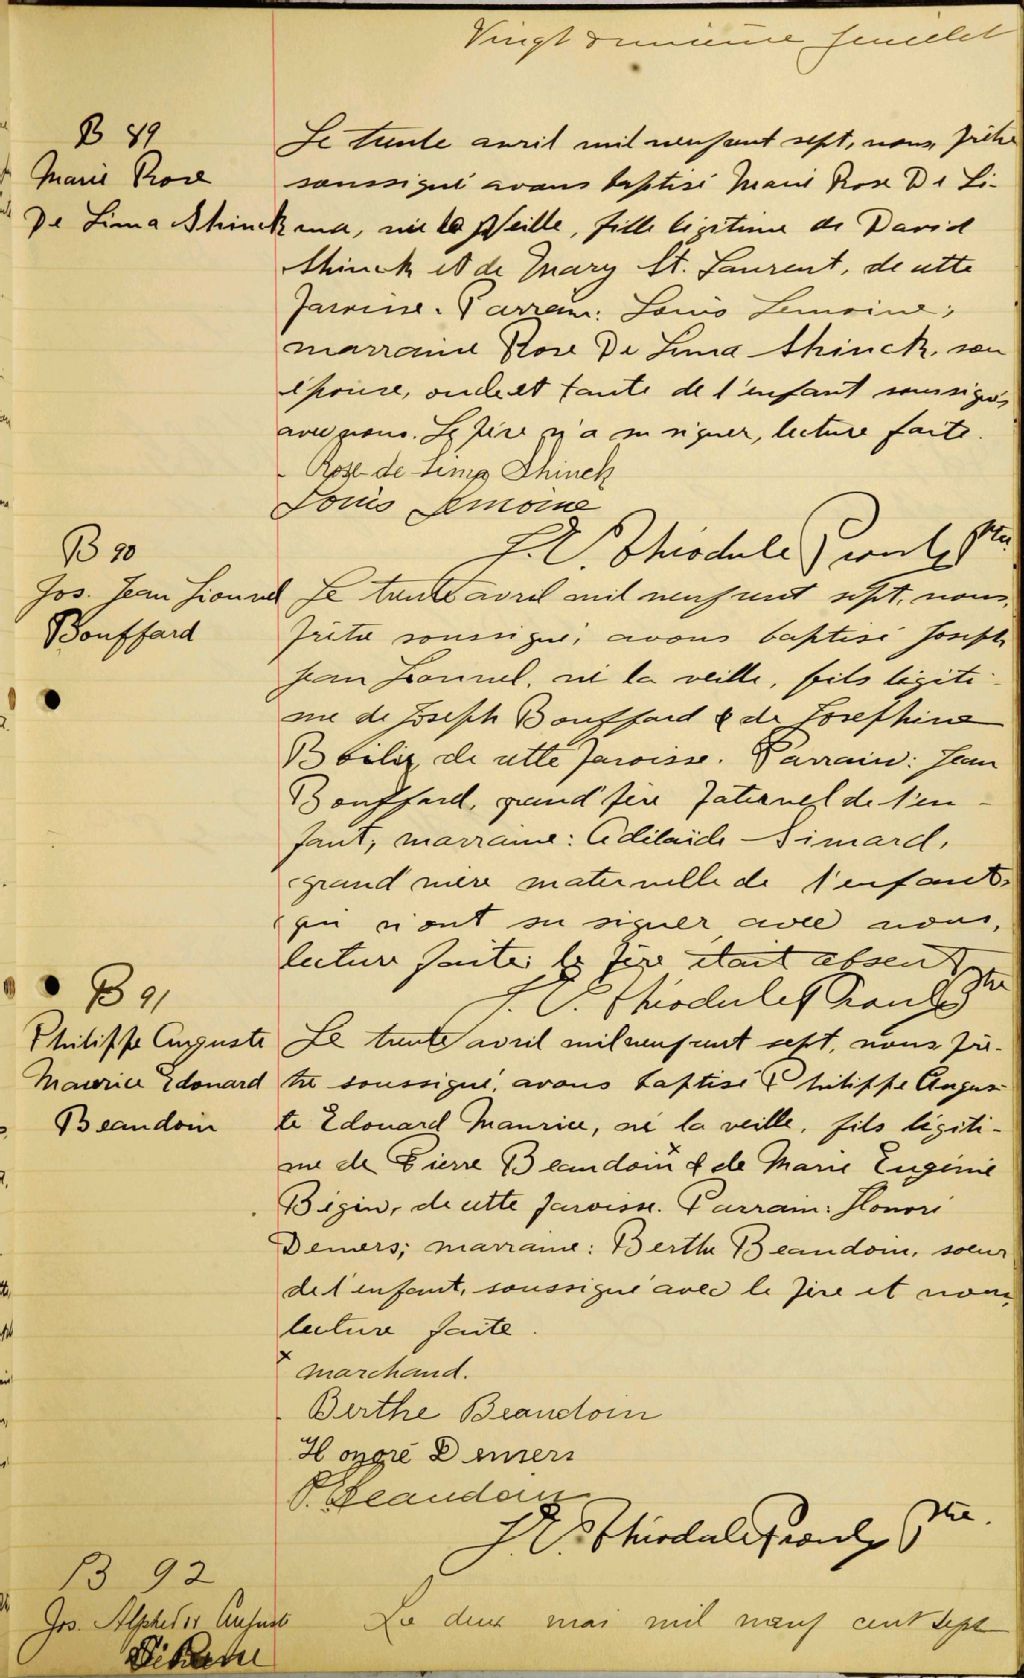 Vingt deuxième feuillet
B 89
Marie Rose
De Lima Shinck
Le trente avril mil neuf cent sept, nous, prêtre
soussigné avons baptisé Marie Rose De Li-
ma, née la veille, fille légitime de David
Shinck et de Mary St. Laurent, de cette
paroisse. Parrain: Louis Lemoine;
marraine Rose De Lima Shinck, son
épouse, oncle et tante de l'enfant soussignés
avec nous. Le père n'a su signer, lecture faite.
Rose de Lima Shinck
Louis Lemoine
J. E. Théodule Proulx Ptre.
B 90
Jos. Jean Lionnel
Bouffard
Le trente avril mil neuf cent sept, nous,
prêtre soussigné, avons baptisé Joseph
Jean Lionnel, né la veille, fils légiti-
me de Joseph Bouffard & de Josephine
Boily, de cette paroisse. Parrain: Jean
Bouffard, grand'père paternel de l'en-
fant; marraine: Adélaïde Simard,
grand'mère maternelle de l'enfant,
qui n'ont su signer avec nous,
lecture faite; le père était absent
J. E. Théodule Proulx Ptre
B 91
Philippe Auguste
Maurice Edouard
Beaudoin
Le trente avril mil neuf cent sept, nous prê-
tre soussigné, avons baptisé Philippe Augus-
te Edouard Maurice, né la veille, fils légiti-
me de Pierre Beaudoin x & de Marie Eugénie
Bégin, de cette paroisse. Parrain: Honoré
Demers; marraine: Berthe Beaudoin, soeur
de l'enfant, soussigné avec le père et nous,
lecture faite.
x marchand.
Berthe Beaudoin
Honoré Demers
P. Beaudoin
J. E. Théodule Proulx Ptre.
B 92
Jos. Auguste
Le deux mai mil neuf cent sept